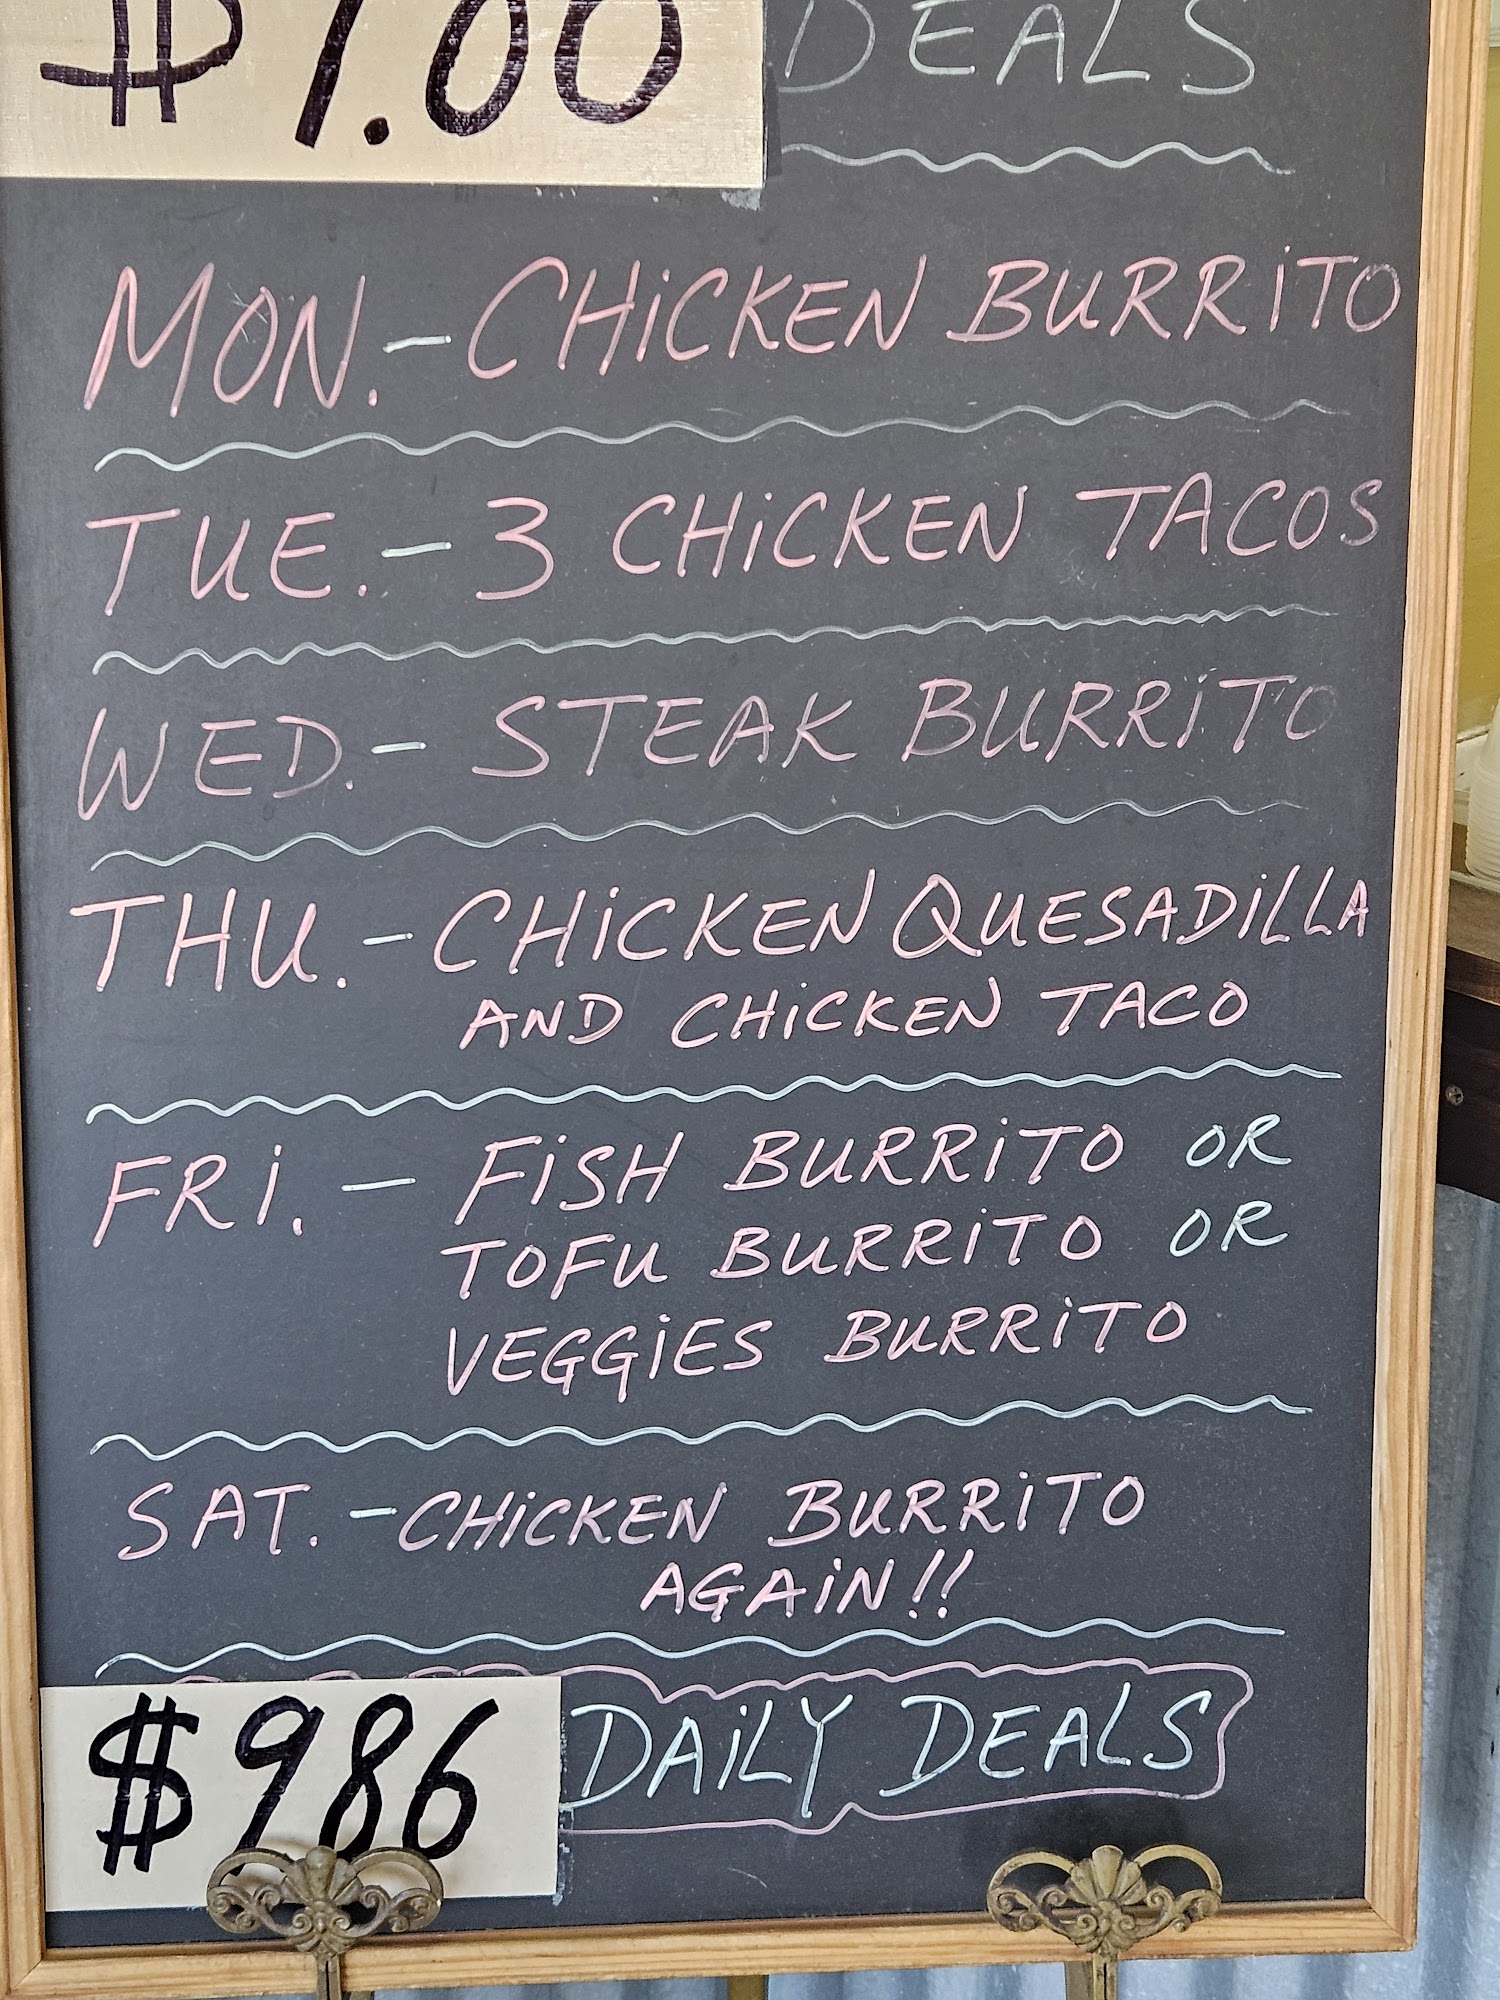 DEALS
MON. - CHiCKEN BURRiTO
TUE. - 3 CHiCKEN TACOS
WED. - STEAK BURRiTO
THU. - CHiCKEN QUESADiLLA
AND CHiCKEN TACO
FRi. - FiSH BURRiTO OR
TOFU BURRiTO OR
VEGGiES BURRiTO
SAT. - CHiCKEN BURRiTO
AGAiN!!
$986 DAiLY DEALS